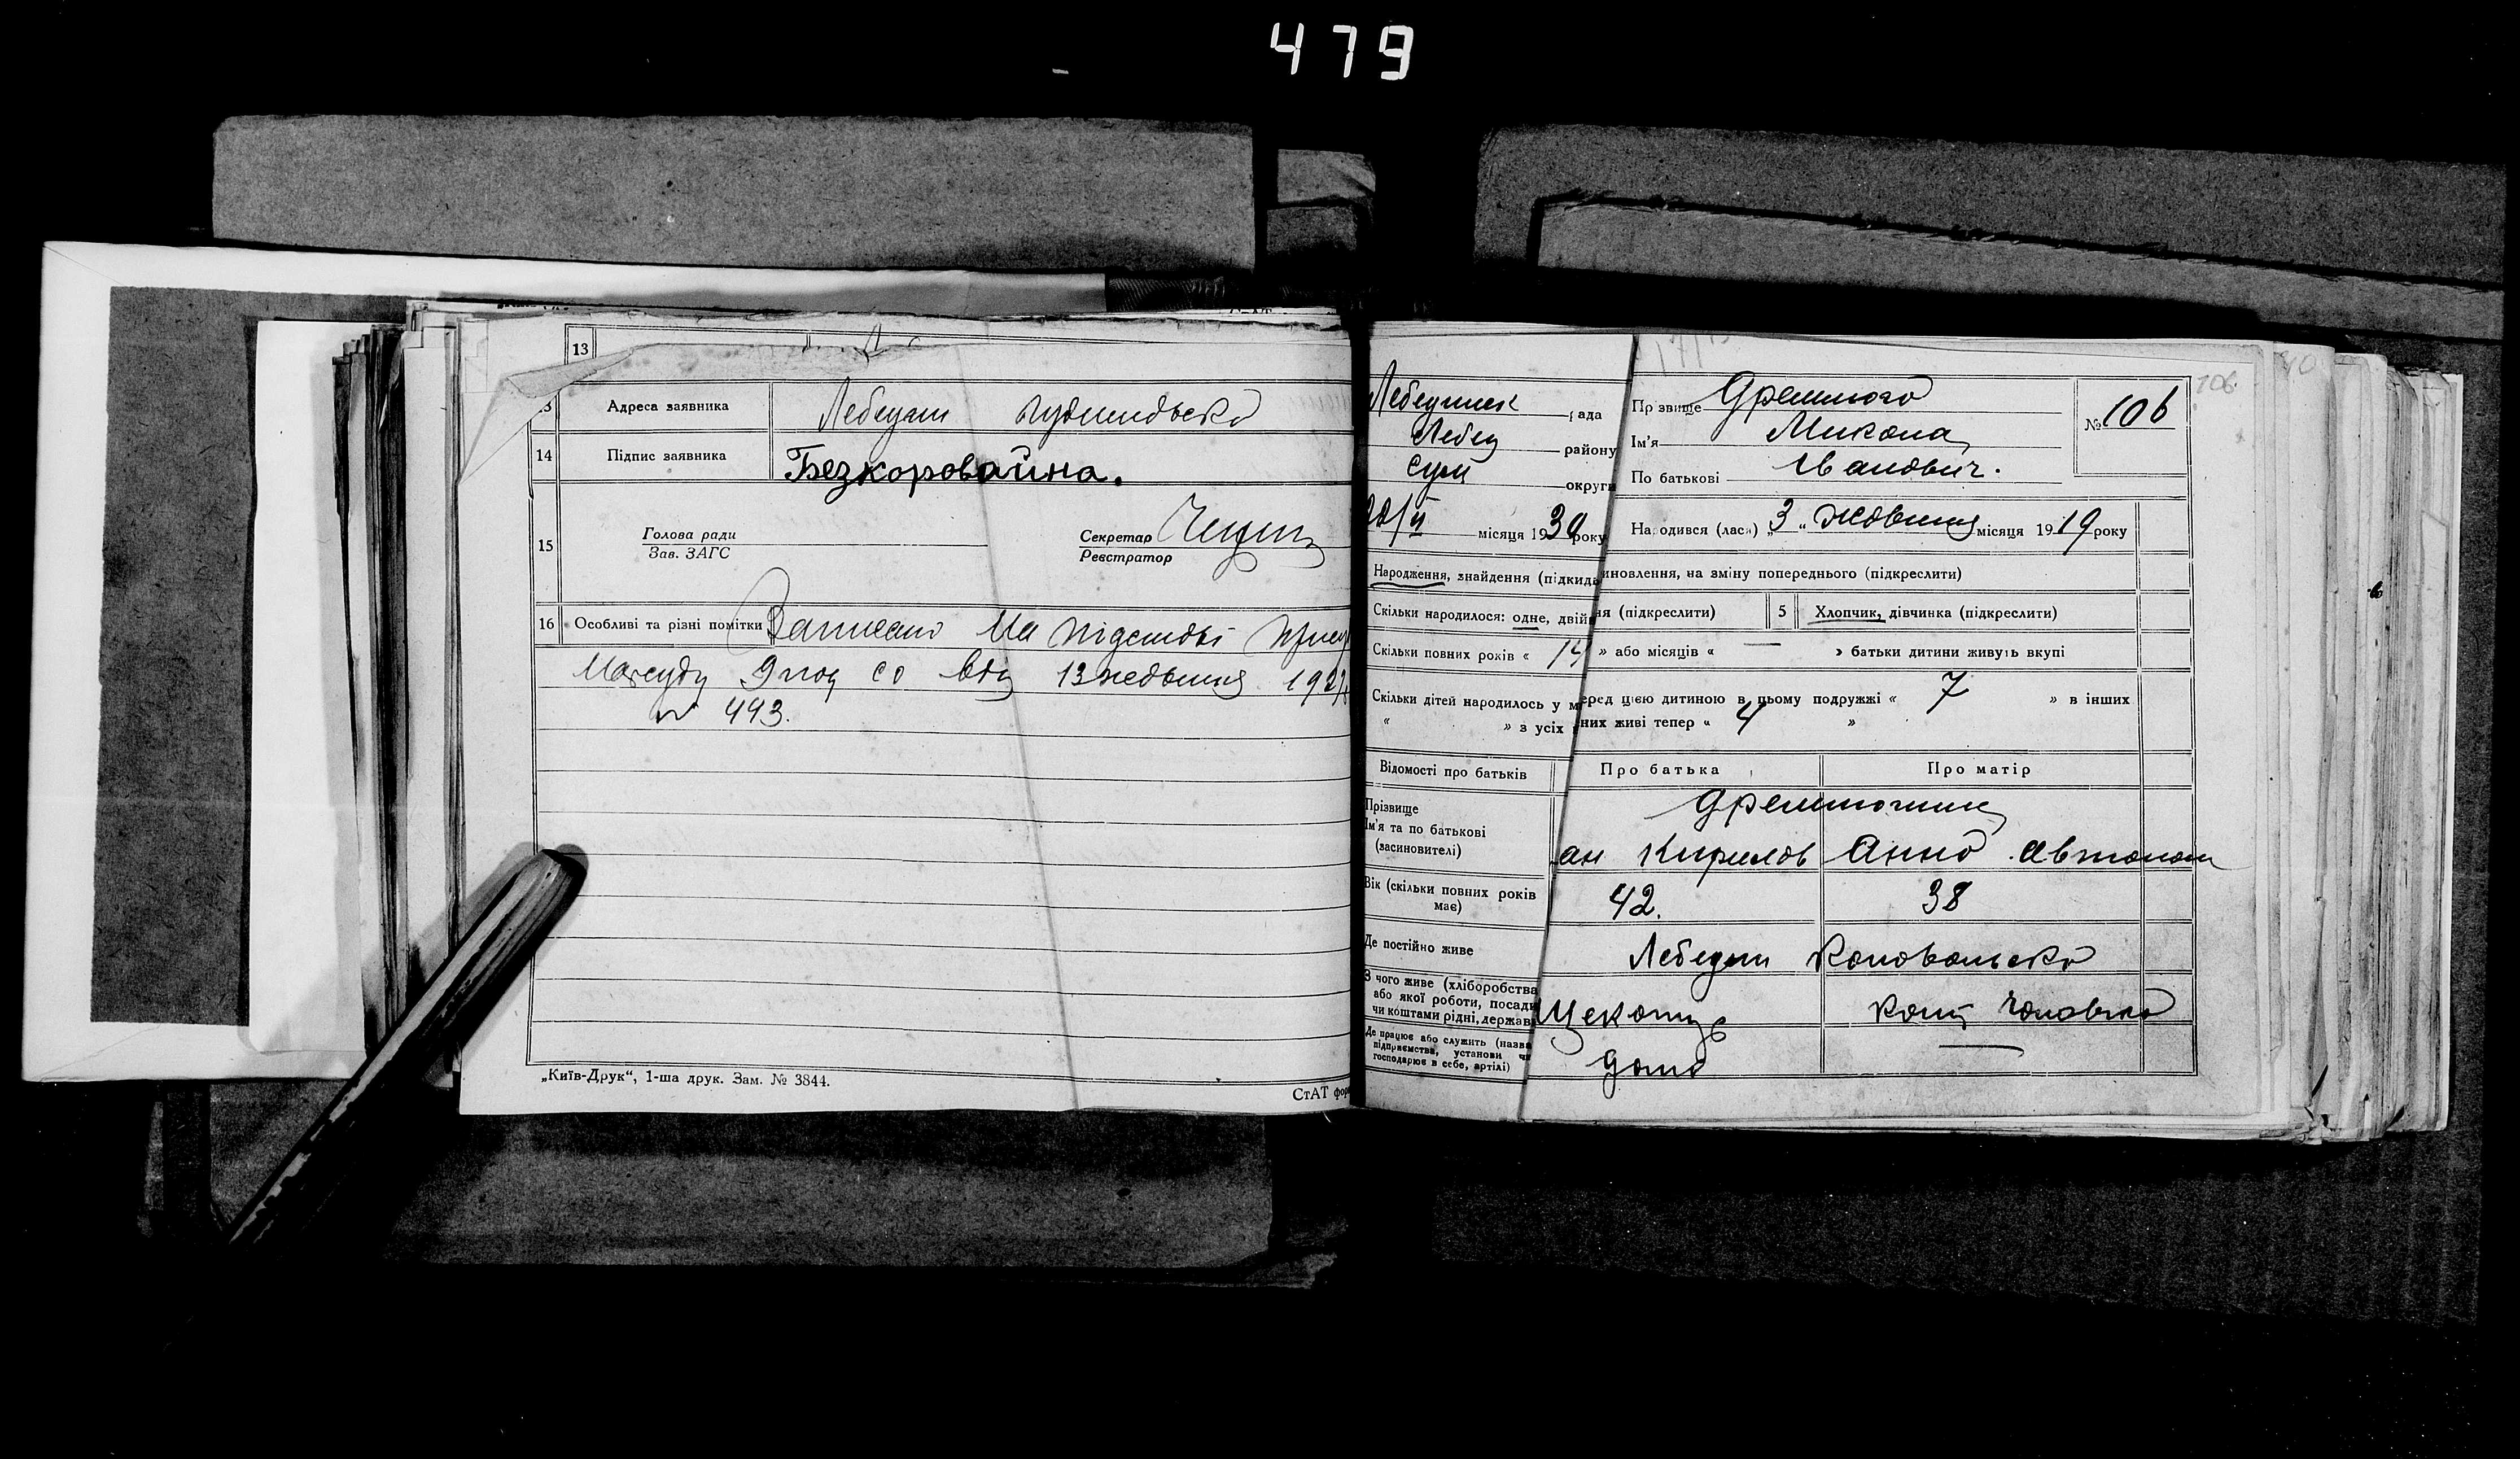 479
13
Адреса заявника Лебедин
14 Підпис заявника Безкоровайна.
15 Голова ради
Зав. ЗАГС
Секретар
Реєстратор
16 Особливі та різні помітки Записано На підставі
со від 13 жовтня 192
№ 493.
„Київ-Друк“, 1-ша друк. Зам. № 3844.
СтАТ фор
106
рада
Лебед району
Сум округи
місяця 1930 року
Прізвище
Ім'я Микола
По батькові Іванович.
№ 106
Народився (лась) „3„ жовтня місяця 1919 року
Народження, знайдення (підкида
иновлення, на зміну попереднього (підкреслити)
Скільки народилося: одне, двій
ня (підкреслити)
5 Хлопчик, дівчинка (підкреслити)
Скільки повних років « 14 » або місяців « — » батьки дитини живуть вкупі
Скільки дітей народилось у м
еред цією дитиною в цьому подружжі « 7 » в інших
« » з усіх
них живі тепер « 4 »
Відомості про батьків
Про батька
Про матір
Прізвище
Ім'я та по батькові
(засиновителі)
ан Кирилов
Анна Автоном
Вік (скільки повних років
має)
42.
38
Де постійно живе
Лебедин
З чого живе (хліборобства
або якої роботи, посади
чи коштами рідні, держав
Де працює або служить (назва
підприємства, установи чи
господарює в себе, артілі)
дома
—